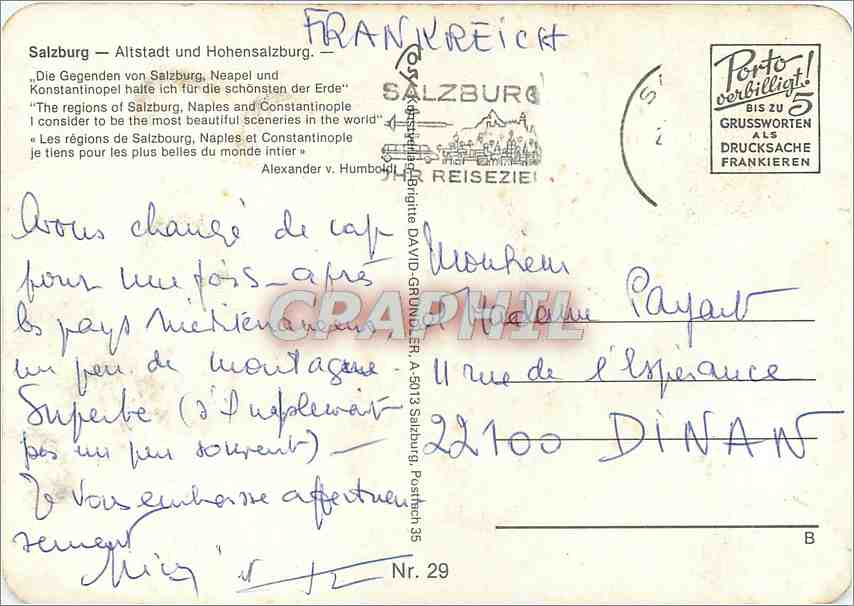 FRANKREICH
Salzburg — Altstadt und Hohensalzburg. —
„Die Gegenden von Salzburg, Neapel und
Konstantinopel halte ich für die schönsten der Erde“
"The regions of Salzburg, Naples and Constantinople
I consider to be the most beautiful sceneries in the world"
« Les régions de Salzbourg, Naples et Constantinople
je tiens pour les plus belles du monde intier »
Alexander v. Humboldt
SALZBURG
IHR REISEZIEL
Porto
verbilligt!
BIS ZU 5
GRUSSWORTEN
ALS
DRUCKSACHE
FRANKIEREN
Kunstverlag Brigitte DAVID-GRÜNDLER, A-5013 Salzburg, Postfach 35
Avons changé de cap
pour une fois - après
les pays méditerranéens,
un peu de montagne -
Superbe (s'il ne pleuvait
pas un peu souvent) —
Je vous embrasse affectueu-
sement
et
Monsieur
et Madame Payart
11 rue de l'Espérance
22100 DINAN
CRAPHIL
B
Nr. 29